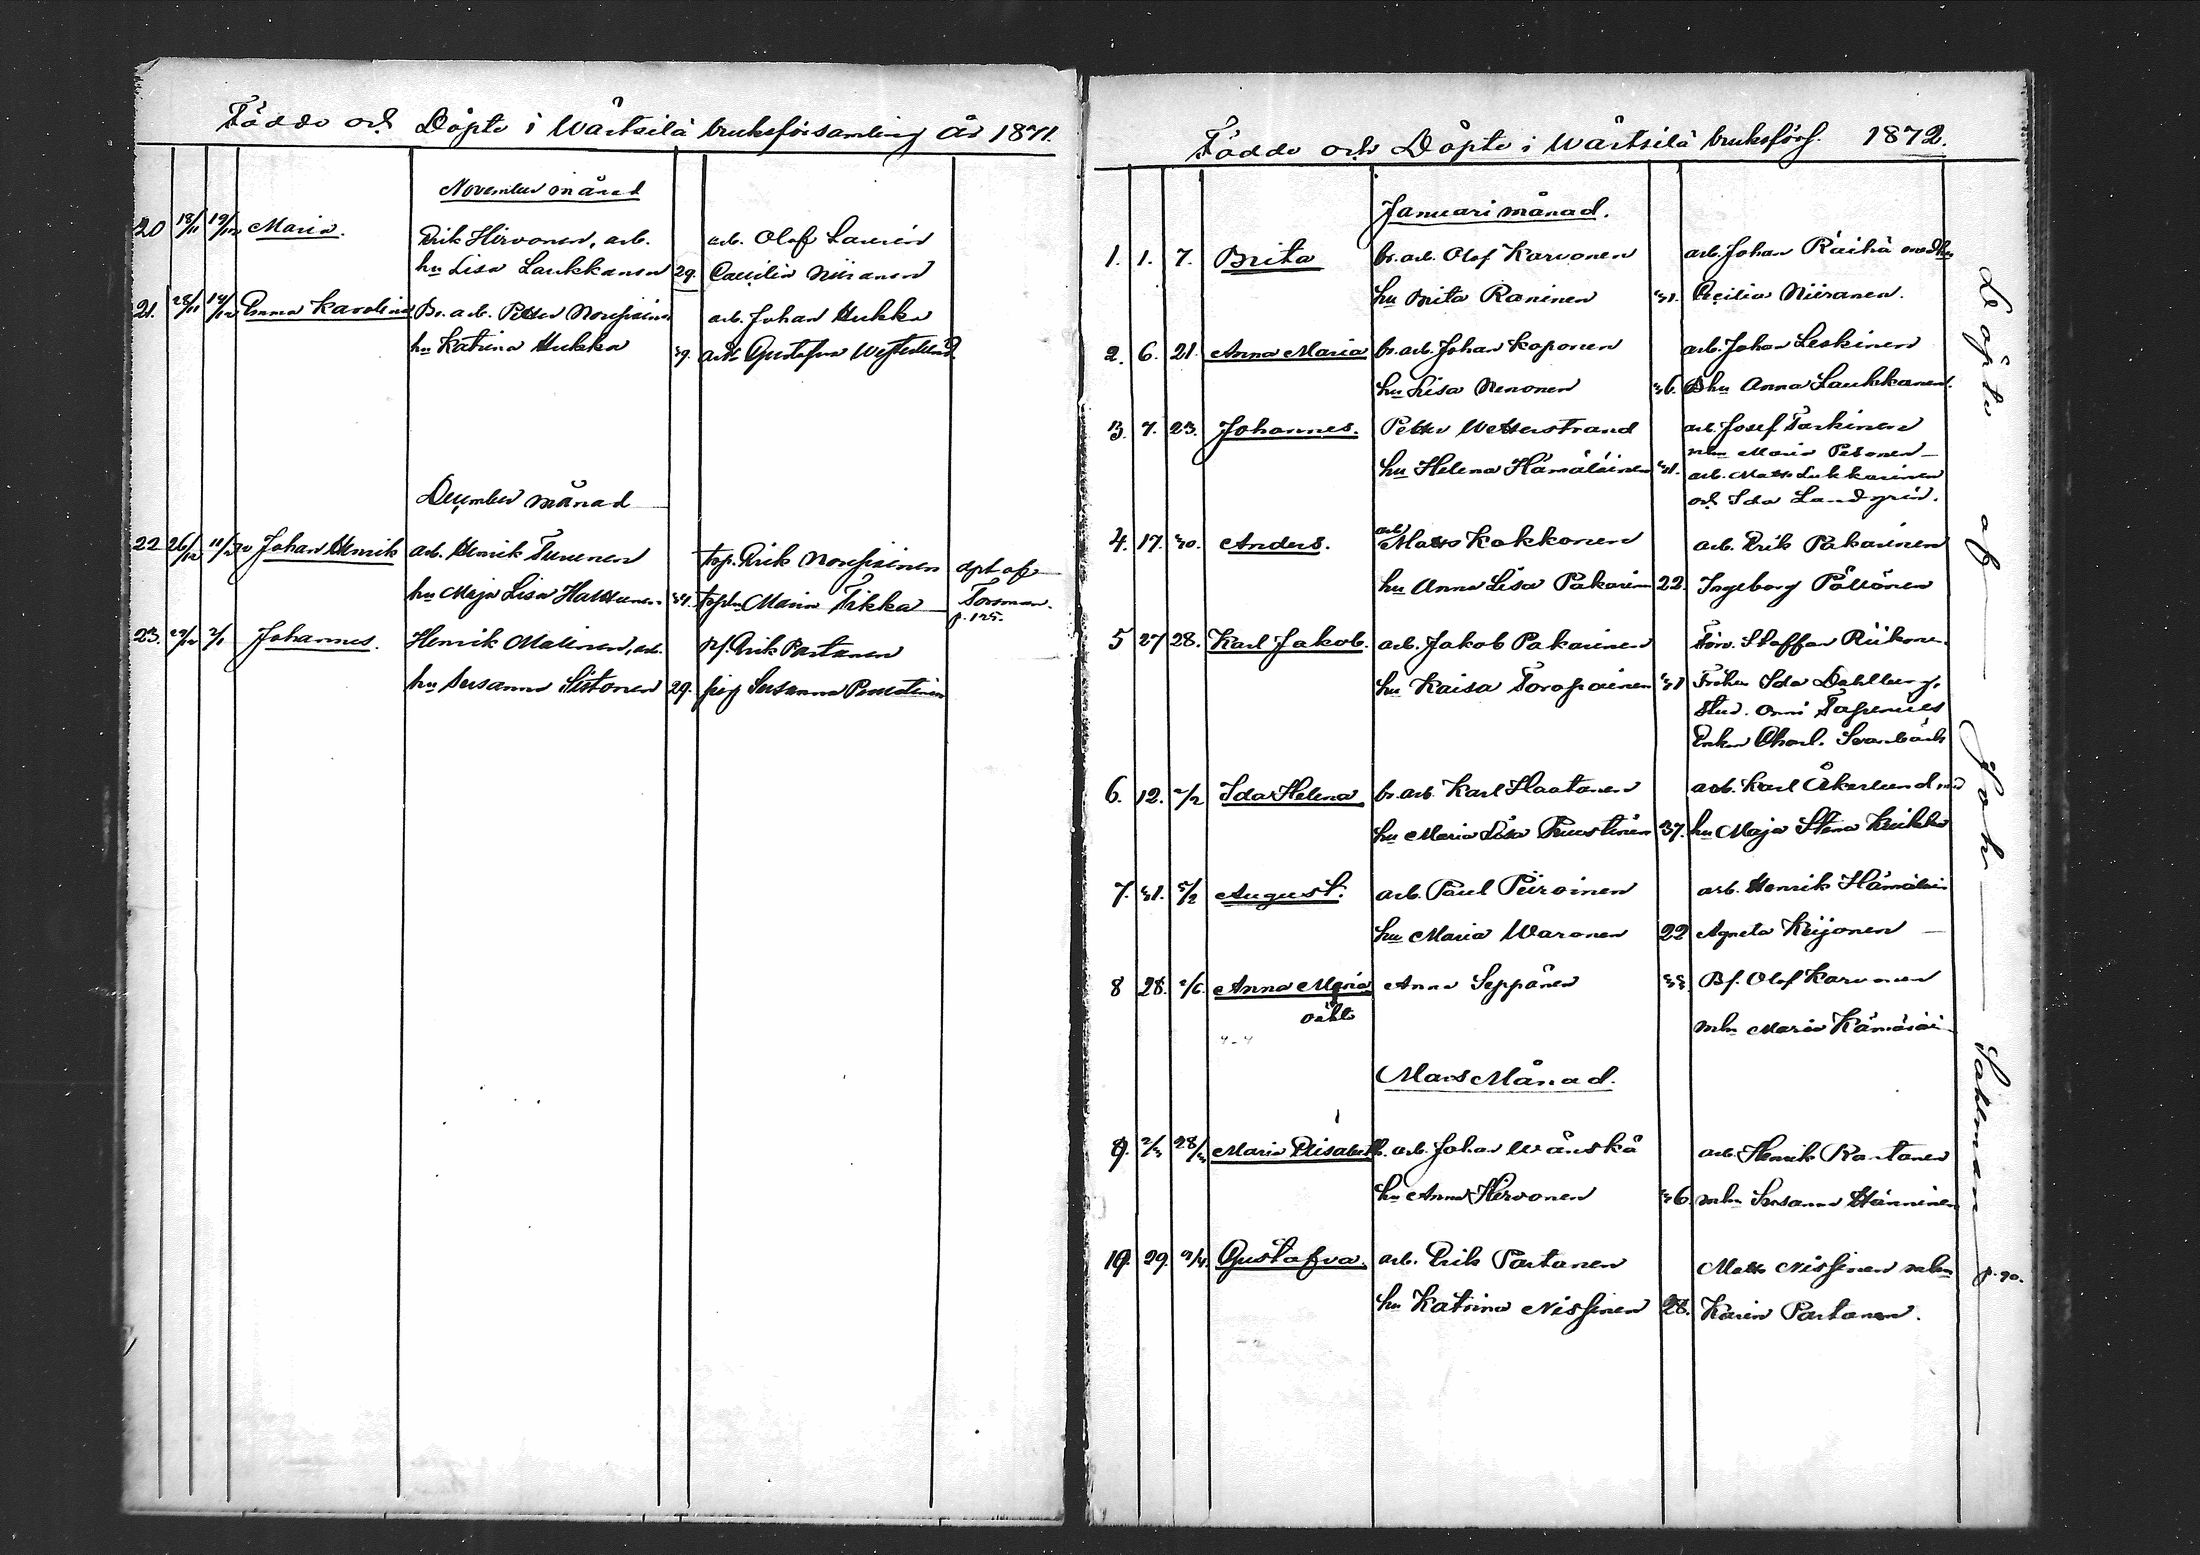 Födde och Döpte i Wärtsilä bruksförsamling År 1871.
November månad
20 18/11 19/12 Maria. Erik Hirvonen, arb. arb. Olof Laurin
hu Lisa Laukkanen 29. Caecilia Niiranen
21. 28/11 19/12 Emma Karolina Br. arb. Petter Noussiainen arb. Johan Hukka
hu Katrina Hukka 39. Gustafva Westerlund
December månad
22 26/12 Johan Henrik arb. Henrik Turunen Erik Noussiainen döpt af
hu Maja Lisa Hattunen 34. Maria Tikka Forsman.
p. 125.
23. 29/12 2/1 Johannes. Henrik Malinen, arb. Erik Partanen
hu Susanna Sistonen 29. pig Susanna Puustinen
Födde och Döpte i Wärtsilä bruksförs. 1872.
Januari månad.
1. 1. 7. Brita br. arb. Olof Karvonen arb. Johan Räihä med hu
hu Brita Raninen 31. Cecilia Niiranen.
2. 6. 21. Anna Maria br. arb. Johan Koponen arb. Johan Leskinen
hu Lisa Nenonen 36. hu Anna Laukkanen.
3. 7. 23. Johannes. Petter Wetterstrand arb. Josef Tarkinen
mhu Maria Pesonen
hu Helena Hämäläinen 31. arb. Matts Lukkarinen
och Ida Landgrén.
4. 17. 30. Anders. arb. Matts Kokkonen arb. Erik Pakarinen
hu Anna Lisa Pakarin 22. Ingeborg Pöllönen
5 27 28. Karl Jakob. arb. Jakob Pakarinen Förv. Staffan Riikonen
hu Kaisa Toropainen 31 Fröken Ida Dahlberg,
Stud. Onni
Enkan Charl. Svanbäck
6. 12. 2/2 Ida Helena br. arb. Karl Haatanen arb. Karl Åkerlund
hu Maria Lisa Puustinen 37. hu Maja Stina Kuikka
7. 31. 5/2 August. arb. Paul Piiroinen arb. Henrik Hämäläin
hu Maria Waronen 22 Agneta Keijonen
8 28. 2/6. Anna Maria Anna Seppänen 33. Bf. Olof Karvonen
oäkta
mhu Maria Hämäläi
Mars Månad.
9. 2/3 28/3 Maria Elisabeth. arb. Johan Wänskä arb. Henrik Rantanen
hu Anna Hirvonen 36. mhu Susanna Hänninen
10. 29. 9/4. Gustafva. arb. Erik Partanen Matts Nissinen mhu
hu Katrina Nissinen 28. Karin Partanen.
Döpte af Joh Sahlman p. 90.